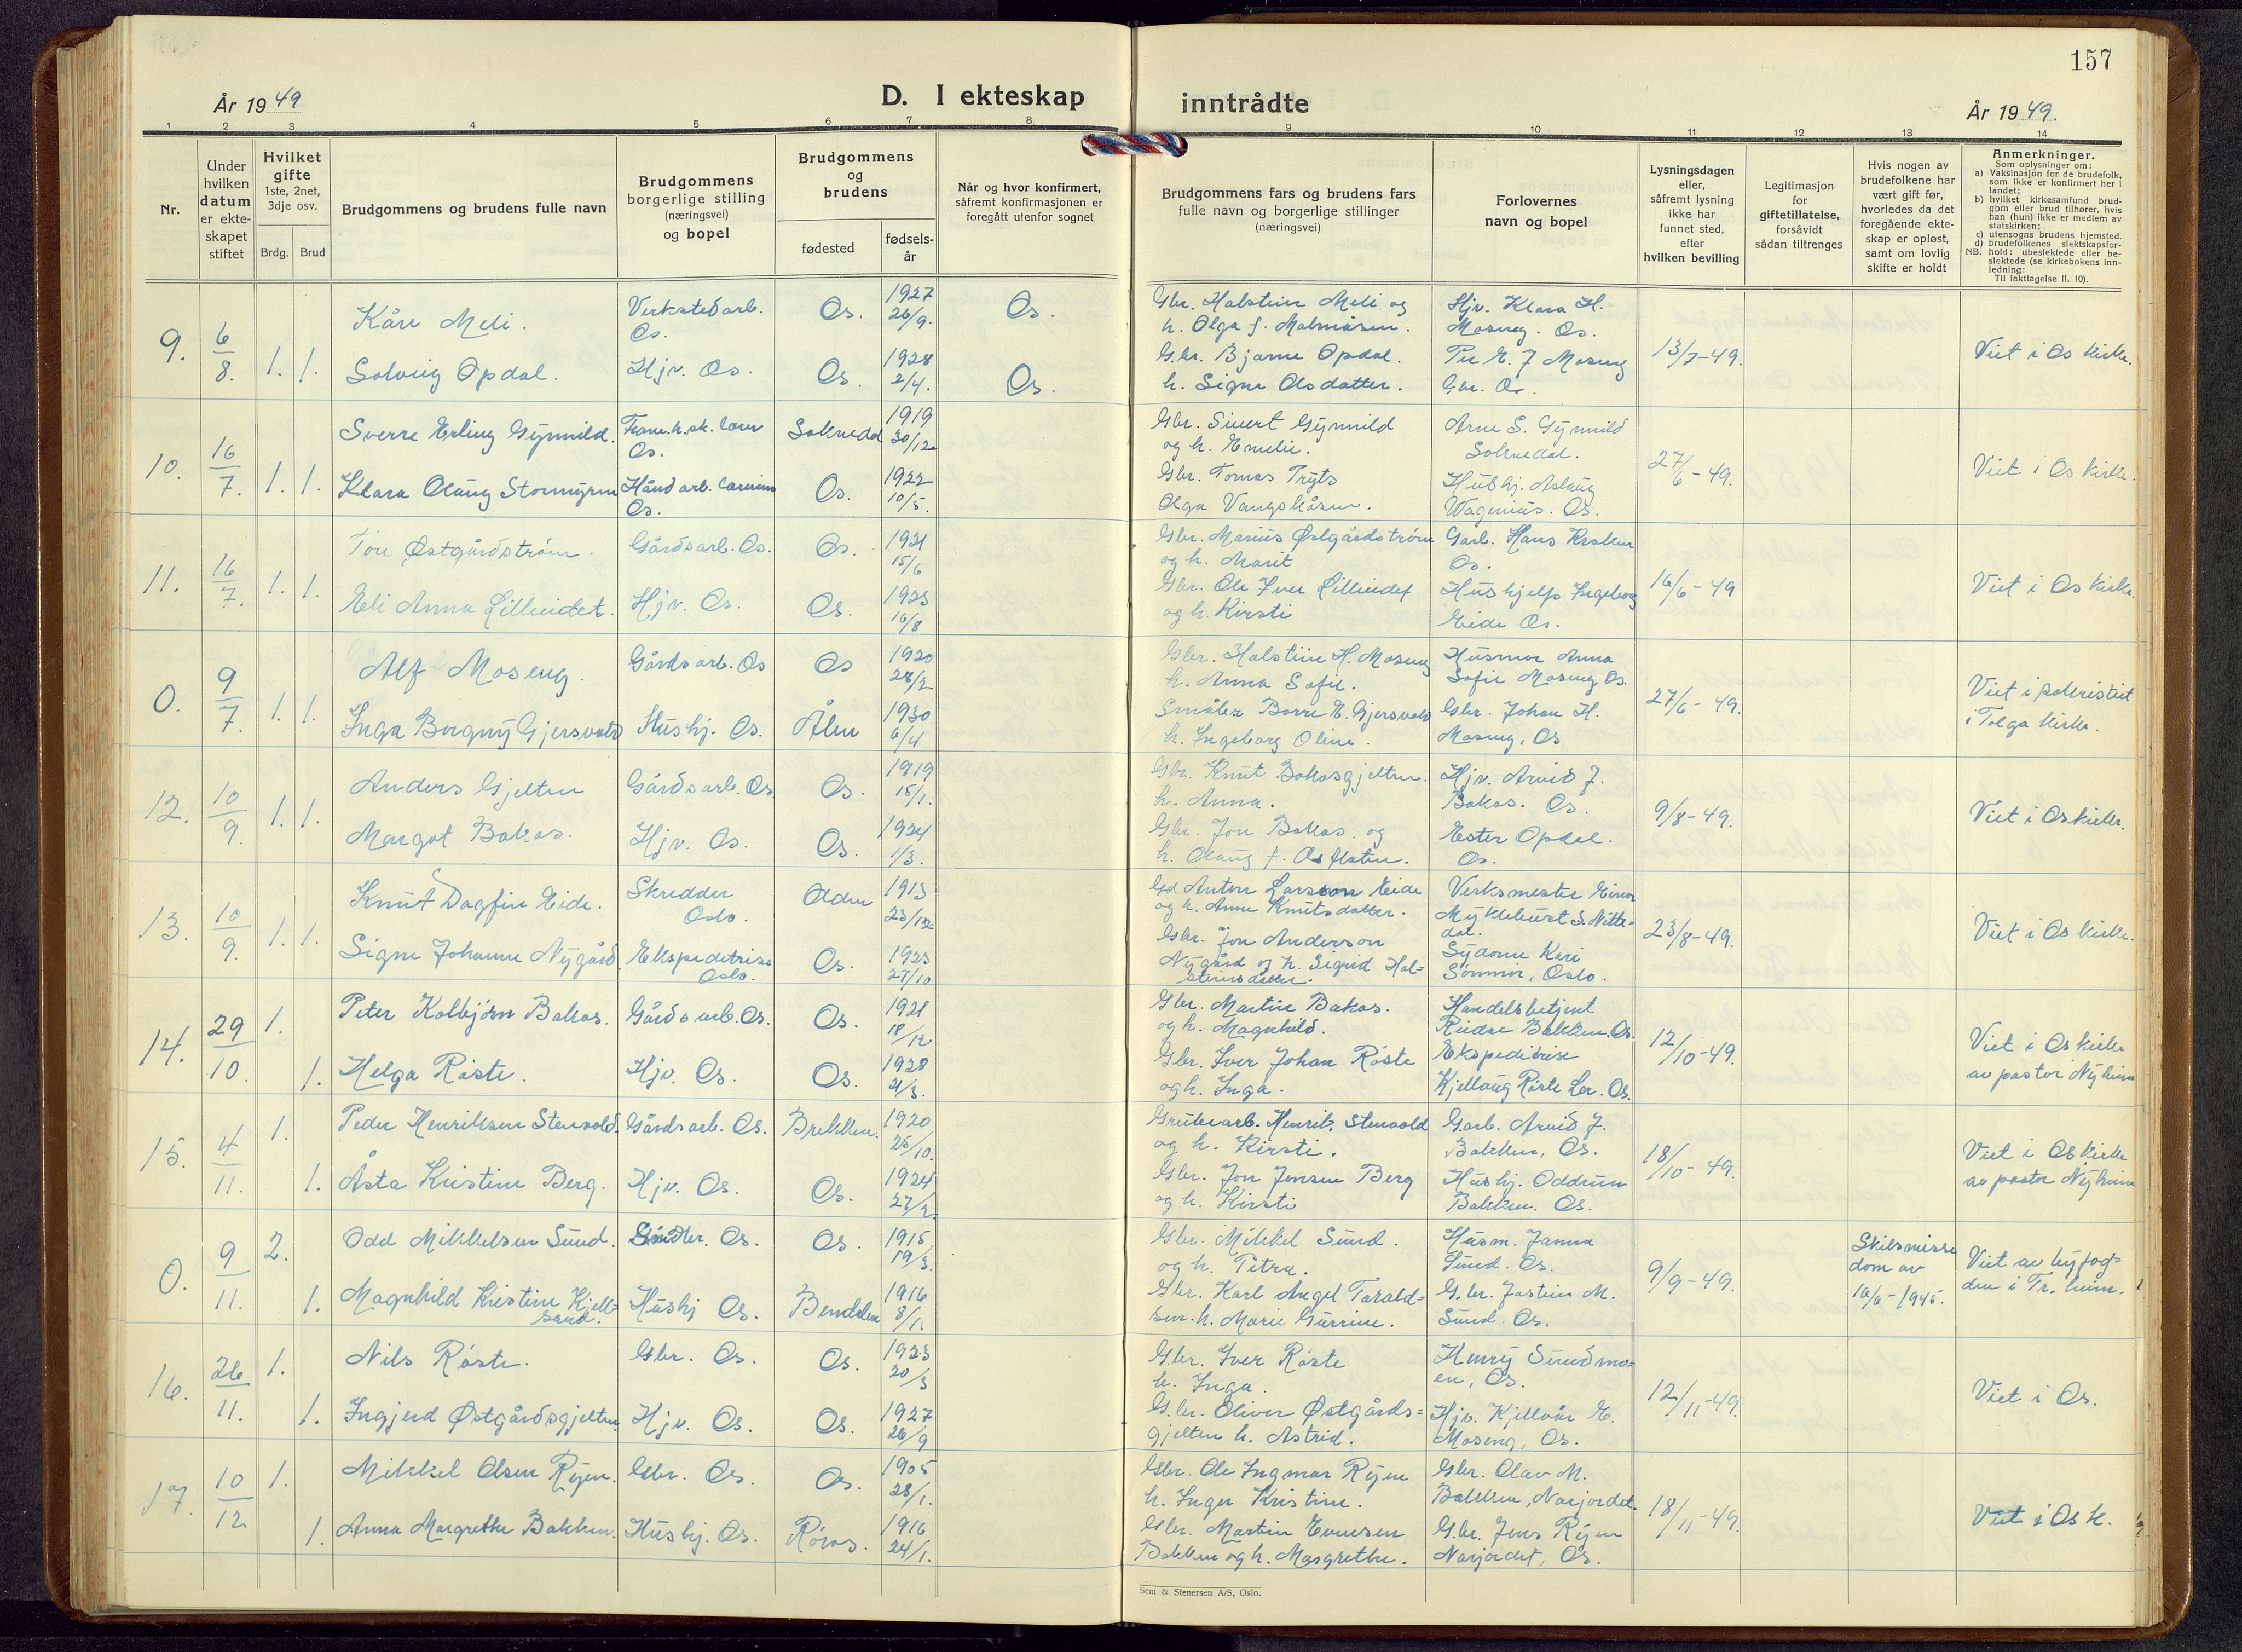 157
År 1949
D. I ekteskap inntrådte
År 1949.
1 2 3 4 5 6 7 8 9 10 11 12 13 14
Nr.
Under hvilken datum er ekteskapet stiftet
Hvilket gifte
1ste, 2net, 3dje osv.
Brdg. Brud
Brudgommens og brudens fulle navn
Brudgommens borgerlige stilling (næringsvei) og bopel
Brudgommens og brudens
fødested
fødsels-år
Når og hvor konfirmert, såfremt konfirmasjonen er foregått utenfor sognet
Brudgommens fars og brudens fars fulle navn og borgerlige stillinger (næringsvei)
Forlovernes navn og bopel
Lysningsdagen eller, såfremt lysning ikke har funnet sted, efter hvilken bevilling
Legitimasjon for giftetillatelse, forsåvidt sådan tiltrenges
Hvis nogen av brudefolkene har vært gift før, hvorledes da det foregående ekteskap er opløst, samt om lovlig skifte er holdt
Anmerkninger.
Som oplysninger om:
a) Vaksinasjon for de brudefolk, som ikke er konfirmert her i landet;
b) hvilket kirkesamfund brudgom eller brud tilhører, hvis han (hun) ikke er medlem av statskirken;
c) utensogns brudens hjemsted.
d) brudefolkenes slektskapsforhold: ubeslektede eller beslektede (se kirkebokens innledning:
NB. Til iakttagelse II. 10).
9. 6/8. 1. 1.
Kåre Meli. Verkstedarb. Os. Os. 1927 26/9. Os.
Gbr. Halstein Meli og h. Olga f. Malmåsen.
Hjv. Klara H. Moseng. Os.
Solveig Opdal. Hjv. Os. Os. 1928 2/4. Os.
Gbr. Bjarne Opdal. h. Signe Olsdatter.
Per E. J Moseng Gbr. Os
13/7-49.
Viet i Os kirke.
10. 16/7. 1. 1.
Sverre Erling Gynnild. Os. Soknedal 1919 30/12
Gbr. Sivert Gynnild og h. Emelie.
Arne S. Gynnild Soknedal.
Klara Olaug Stormyren Håndarb. lærerinne Os. Os. 1922 10/5.
Gbr. Tomas Tryts Olga Vangskåsen.
Hushj. Aslaug Wagenius. Os.
27/6-49.
Viet i Os kirke.
11. 16/7. 1. 1.
Tore Østgårdstrøm. Gårdsarb. Os. Os. 1921 15/6
Gbr. Marius Østgårdstrøm og h. Marit
Garb. Hans Os.
Eli Anna Lilleidet. Hjv. Os. Os. 1925 16/8
Gbr. Ole Iver Lilleidet og h. Kirsti
Hushjelp Ingeborg Eide Os.
16/6-49
Viet i Os kirke.
0. 9/7. 1. 1.
Alf Moseng. Gårdsarb. Os Os 1920 28/2
Gbr. Halstein H. Moseng h. Anna Sofie.
Husmor Anna Sofie Moseng Os.
Inga Borgny Gjersvold Hushj. Os. Ålen 1930 6/4
Borre E. Gjersvold h. Ingeborg Oline.
Gbr. Johan H. Moseng, Os
27/6-49.
Viet i sakristiet i Tolga kirke.
12. 10/9. 1. 1.
Anders Gjelten Gårdsarb. Os. Os. 1919 15/1.
Gbr. Knut Bakosgjelten. h. Anna.
Hjv. Arvid J. Bakos. Os.
Margot Bakos. Hjv. Os. Os. 1924 1/3.
Gbr. Jon Bakos. og h. Olaug f. Osflaten.
Ester Opdal. Os.
9/8-49.
Viet i Os kirke.
13. 10/9. 1. 1.
Knut Dagfin Eide. Skredder Oslo. Odden 1913 23/12
Anton Larsson Eide og h. Anne Knutsdatter.
Verksmester Einar Myklebust S. Nittedal.
Signe Johanne Nygård. Ekspeditrise Oslo. Os. 1923 27/10
Gbr. Jon Anderson Nygård og h. Sigrid Halsteinsdatter.
Sydame Kari Oslo.
23/8-49.
Viet i Os kirke.
14. 29/10. 1. 1.
Peter Kolbjørn Bakos. Gårdsarb. Os. Os. 1921 18/12
Gbr. Martin Bakos. og h. Magnhild.
Handelsbetjent Reidar Bakken. Os.
Helga Røste. Hjv. Os. Os. 1928 21/3.
Gbr. Iver Johan Røste og h. Inga.
Ekspeditrise Kjellaug Røste Os.
12/10-49.
Viet i Os kirke av pastor Nyhuus
15. 4/11. 1. 1.
Peder Henriksen Stenvold. Gårdsarb. Os. Brekken. 1920 25/10.
Grubearb. Henrik Stenvold og h. Kirsti.
Garb. Arvid J. Bakken, Os.
Åsta Kristine Berg. Hjv. Os. Os. 1924 27/2.
Gbr. Jon Jensen Berg og h. Kirsti
Hushj. Oddrun Bakken. Os.
18/10-49.
Viet i Os kirke av pastor Nyhuus
0. 9/11. 2. 1.
Odd Mikkelsen Sund. Os. Os. 1915 19/3.
Gbr. Mikkel Sund. og h. Petra.
Husm. Janna Sund. Os.
Magnhild Kristine Kjellsand. Hushj Os. 1916 8/1.
Gbr. Karl Angel Taraldsen. h. Marie Gurine.
G.br. Jostein M. Sund. Os.
9/9-49.
Skilsmisse dom av 16/6-1945.
Viet av byfogden i Tr.heim.
16. 26/11. 1. 1.
Nils Røste. Gbr. Os. Os. 1923 20/3
Gbr. Iver Røste h. Inga.
Henry Sundmoen, Os.
Ingjerd Østgårdsgjelten. Hjv. Os. Os. 1927 26/9
G.br. Oliver Østgårdsgjelten h. Astrid.
Hjv. Kjellvår E. Moseng, Os.
12/11-49.
Viet i Os.
17. 10/12 1. 1.
Mikkel Olsen Ryen. Gbr. Os. Os. 1905 28/1.
Gbr. Ole Ingmar Ryen h. Inger Kristine.
Gbr. Olav M. Bakken, Narjordet.
Anna Margrethe Bakken. Hushj. Os. Røros. 1916 24/1.
Gbr. Martin Evensen Bakken og h. Margrethe.
G.br. Jens Ryen Narjordet, Os.
18/11-49.
Viet i Os k.
Sem & Stenersen A/S, Oslo.